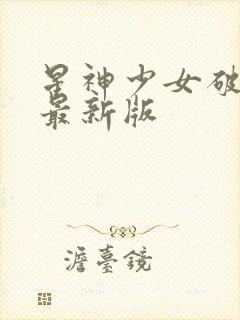 星神少女破
最新版
澹臺鏡